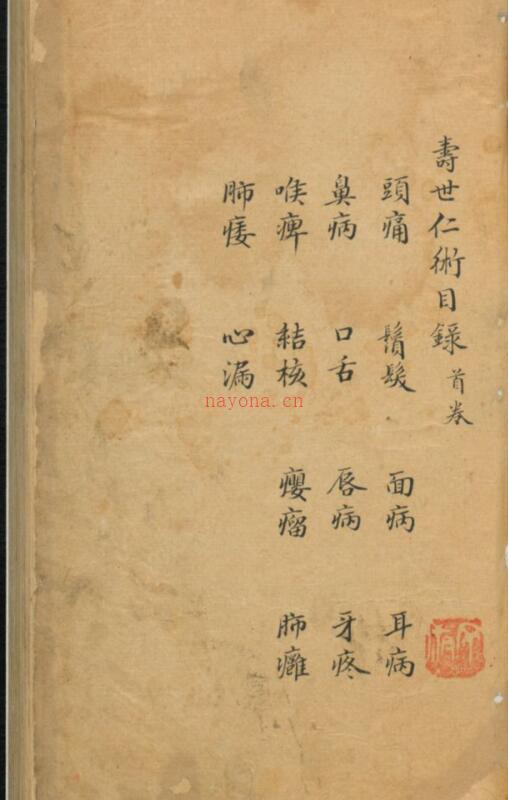 壽世仁術目錄 首卷
頭痛 鬚髮 面病 耳病
鼻病 口舌 唇病 牙疼
喉痺 結核 癭瘤 肺癰
肺痿 心漏
nayona.cn